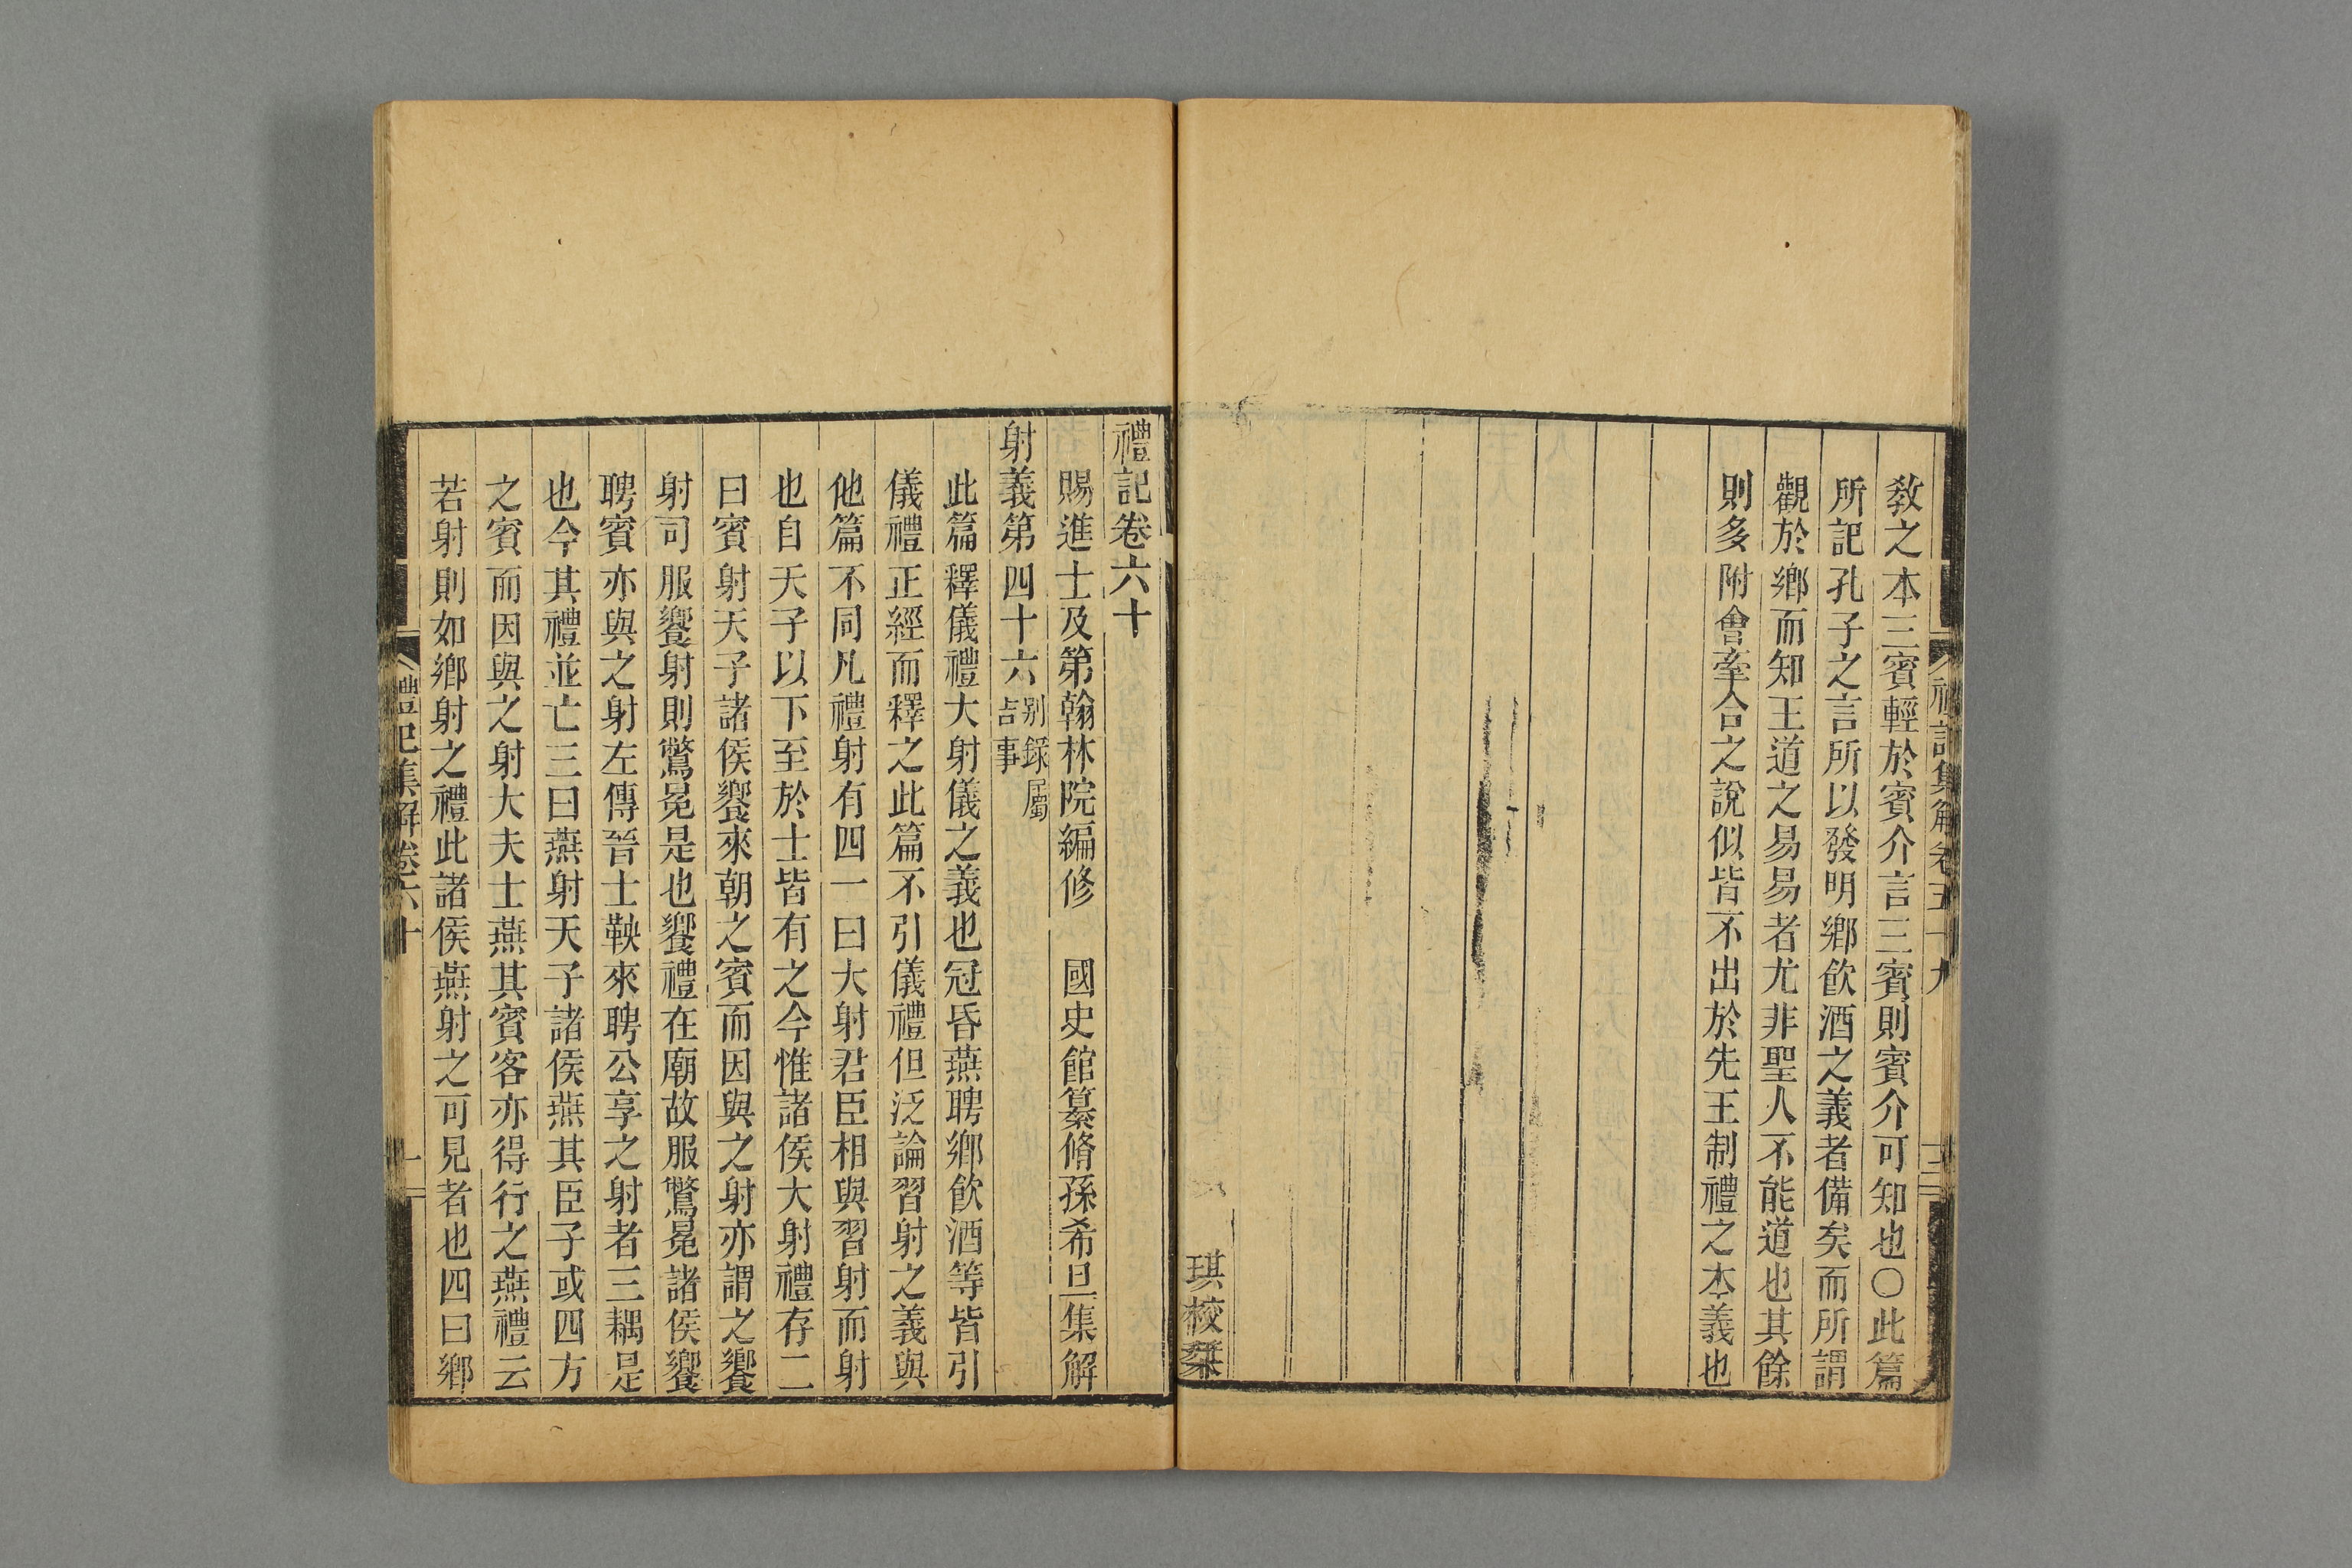 禮記集解卷五十九
教之本三賓輕於賓介言三賓則賓介可知也○此篇
所記孔子之言所以發明鄉飲酒之義者備矣而所謂
觀於鄉而知王道之易易者尤非聖人不能道也其餘
則多附會牽合之說似皆不出於先王制禮之本義也
琪校琹
禮記卷六十
賜進士及第翰林院編修 國史館纂脩孫希旦集解
射義第四十六别錄屬吉事
此篇釋儀禮大射儀之義也冠昏燕聘鄉飲酒等皆引
儀禮正經而釋之此篇不引儀禮但泛論習射之義與
他篇不同凡禮射有四一曰大射君臣相與習射而射
也自天子以下至於士皆有之今惟諸侯大射禮存二
曰賓射天子諸侯饗來朝之賓而因與之射亦謂之饗
射司服饗射則鷩冕是也饗禮在廟故服鷩冕諸侯饗
聘賓亦與之射左傳晉士鞅來聘公享之射者三耦是
也今其禮並亡三曰燕射天子諸侯燕其臣子或四方
之賓而因與之射大夫士燕其賓客亦得行之燕禮云
若射則如鄉射之禮此諸侯燕射之可見者也四曰鄉
禮記集解卷六十
一